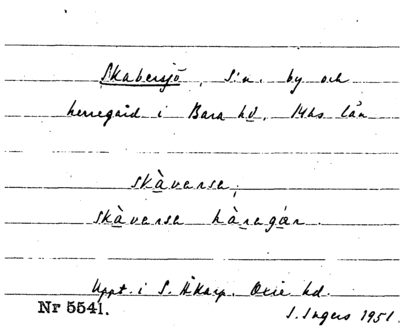 Skabersjö, s:n, by och
herregård i Bara hd, Mhs län
skàvarsa;
skàvarsa hàragár.
Uppt. i S. Åkarp. Oxie hd.
Nr 5541.
I. Ingers 1951.